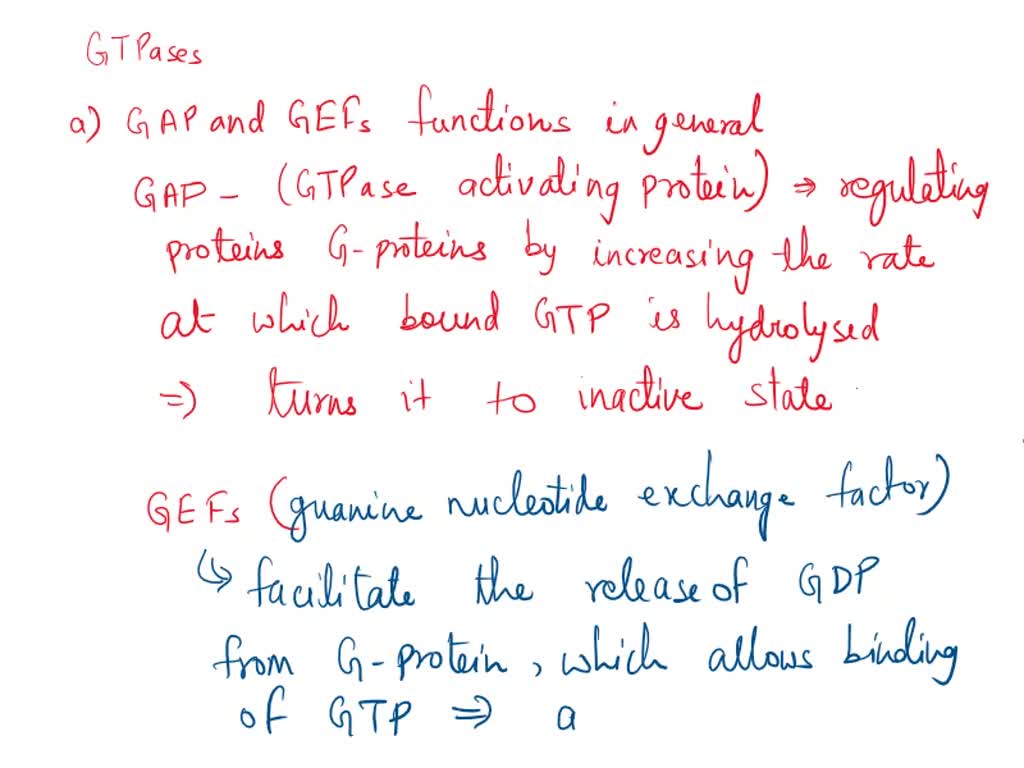 GTPases
a) GAP and GEFs functions in general
GAP - (GTPase activating protein) ⇒ regulating
proteins G-proteins by increasing the rate
at which bound GTP is hydrolysed
⇒ turns it to inactive state
GEFs (guanine nucleotide exchange factor)
↳ facilitate the release of GDP
from G-protein, which allows binding
of GTP ⇒ a